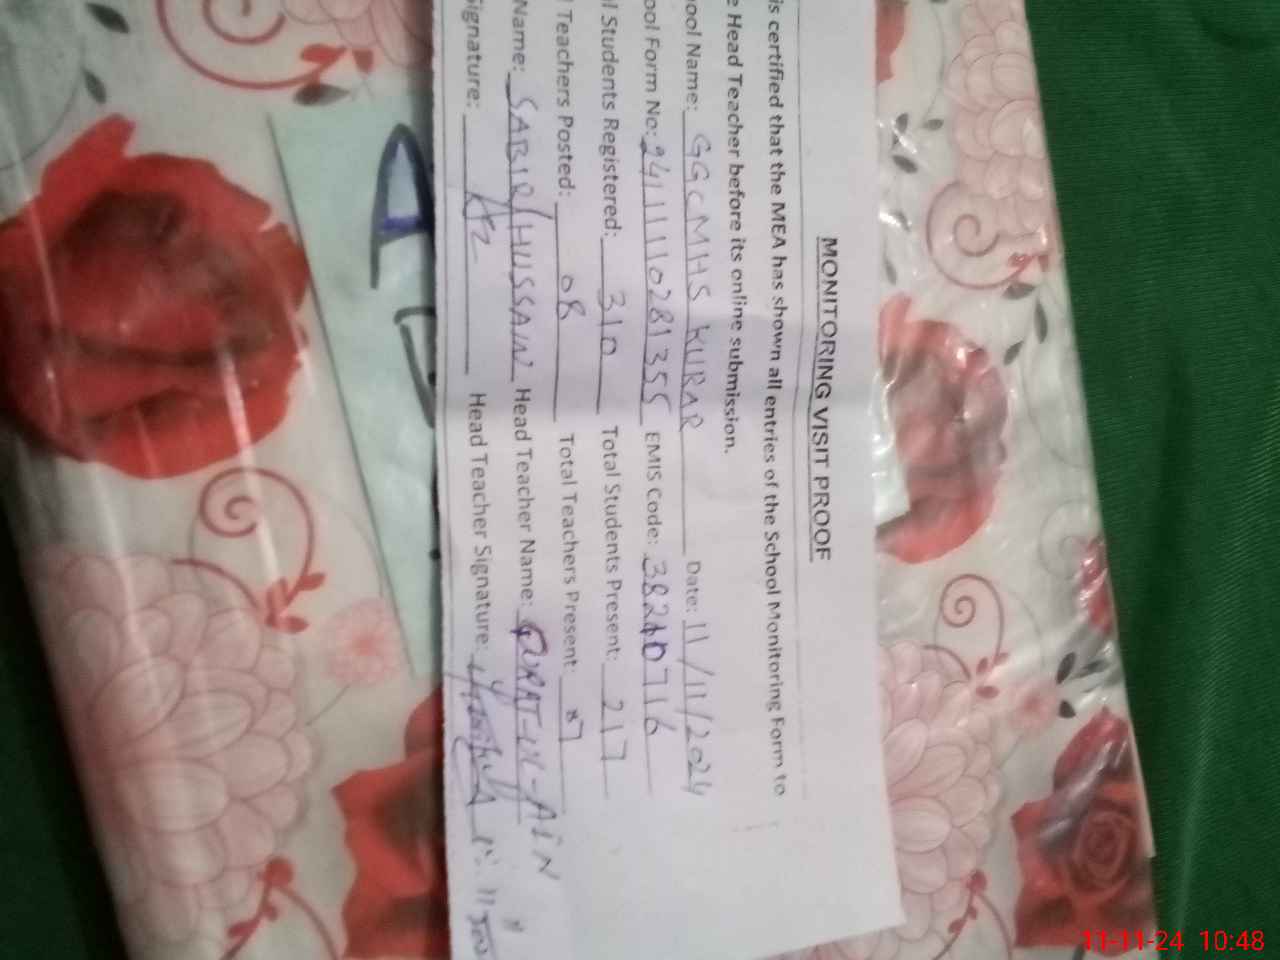 MONITORING VISIT PROOF
is certified that the MEA has shown all entries of the School Monitoring Form to
e Head Teacher before its online submission.
ool Name: GGCMHS KURAR Date: 11/11/2024
ool Form No: 2411110281355 EMIS Code: 38210716
l Students Registered: 310 Total Students Present: 217
l Teachers Posted: 08 Total Teachers Present: 07
Name: SABIR HUSSAIN Head Teacher Name: QURAT-UL-AIN
ignature: Head Teacher Signature:
11-11-24 10:48